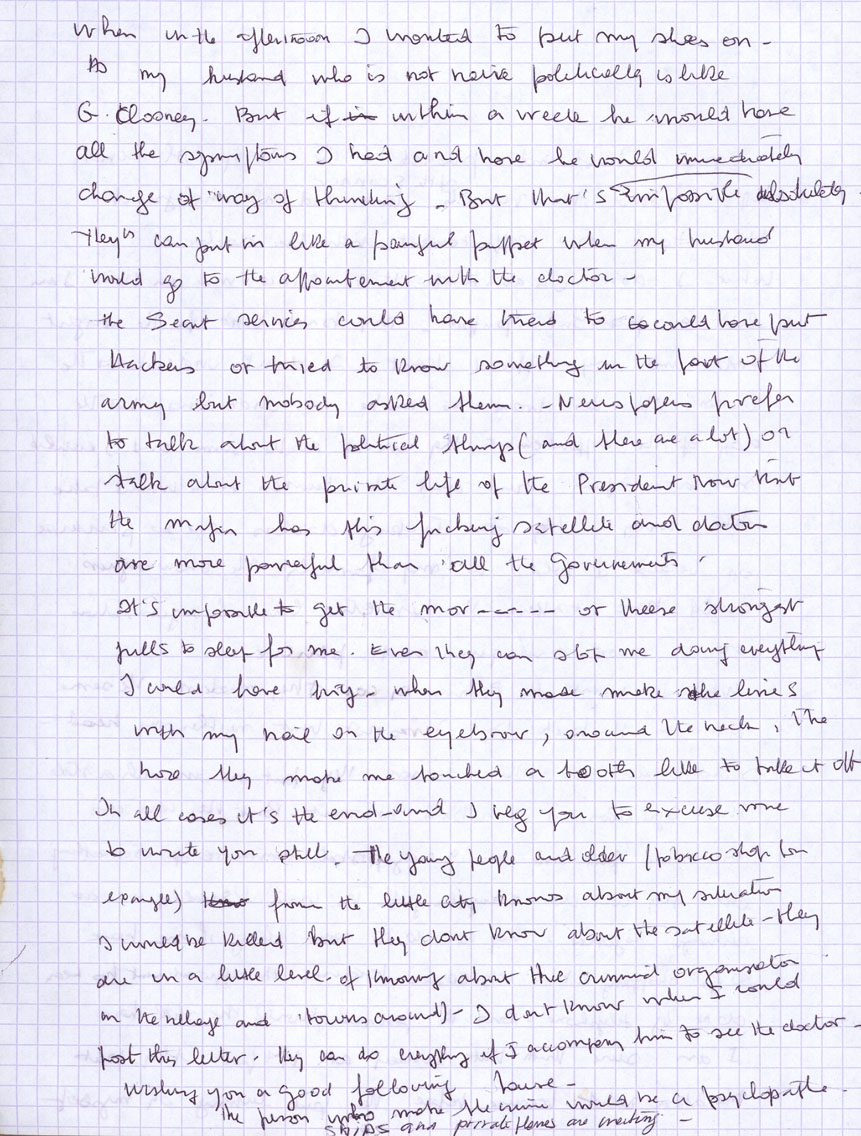 When in the afternoon I wanted to put my shoes on -
As my husband who is not naive politically is like
G. Clooney. But if in within a week he would have
all the symptoms I had and have he would immediately
change of way of thinking - But that's impossible absolutely.
They can put in like a painful puppet when my husband
would go to the appointement with the doctor -
the Secret services could have tried to could have put
Hackers or tried to know something in the part of the
army but nobody asked them. - Newspapers prefer
to talk about the political things (and there are a lot) or
talk about the private life of the President Now that
the mafia has this fucking satellite and doctors
are more powerful than all the Governments.
It's impossible to get the mor------ or these strongest
pills to sleep for me. Even they can stop me doing everything
I could have - when they make the lines
with my nail on the eyebrow, around the neck, The
have they make me touched a tooth like to take it off
In all cases it's the end - and I beg you to excuse me
to write you still. The young people and older (tobacco shop for
example) from the little city knows about my situation
I would be killed but they dont know about the satellite - they
are in a little level of knowing about the criminal organisation
in the village and towns around) - I don't know when I could
post this letter. they can do everything if I accompany him to see the doctor -
Wishing you a good following house -
The person who make the would be a psychopathe.
and private planes are -